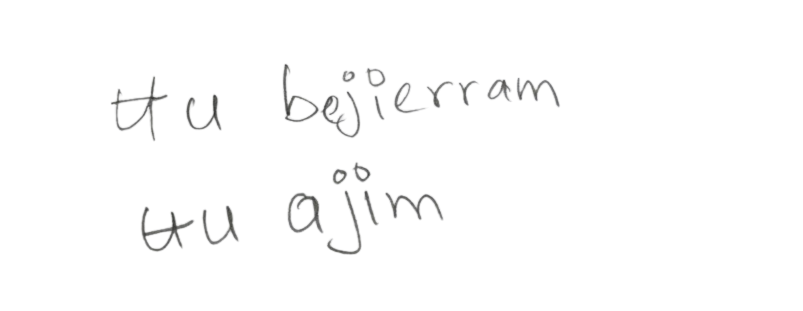 ttu bejierram
ttu ajim